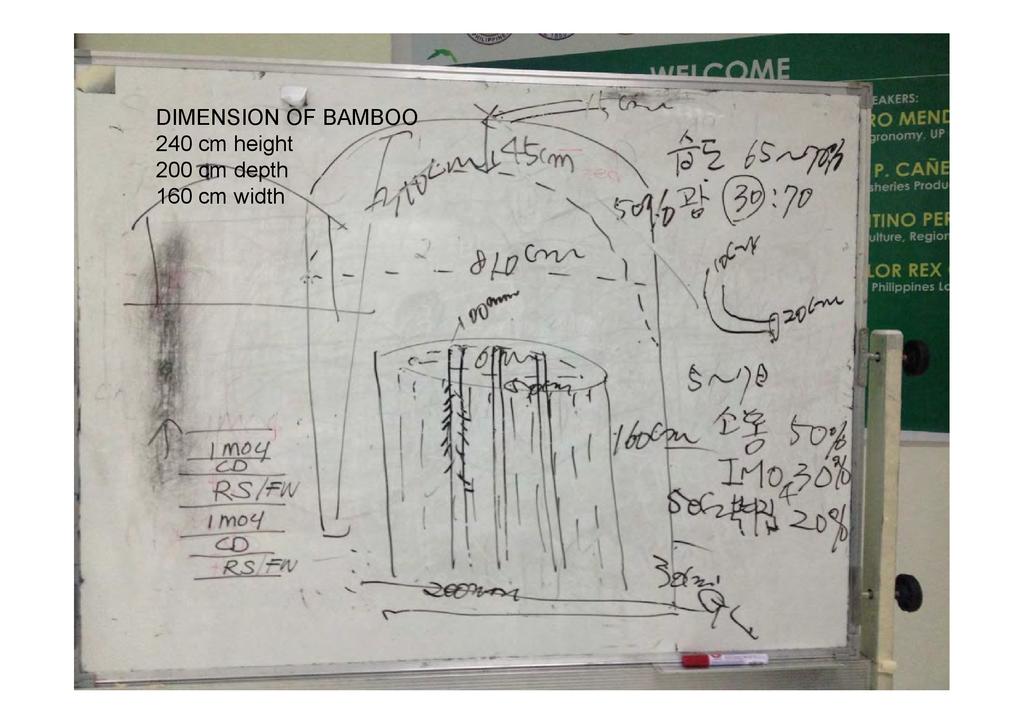 DIMENSION OF BAMBOO
240 cm height
200 cm depth
160 cm width
WELCOME
EAKERS:
RO MEND
gronomy, UP
P. CAÑE
sheries Produ
TINO PER
ulture, Region
LOR REX
Philippines Lo
15cm
45cm
240cm
810cm
100mm
50cm
160cm
200mm
습도 65~70%
50% 광 30:70
10cm
20cm
소똥 50%
IMO4 30%
20%
30cm
IMO4
CD
RS/FW
IMO4
CD
RS/FW